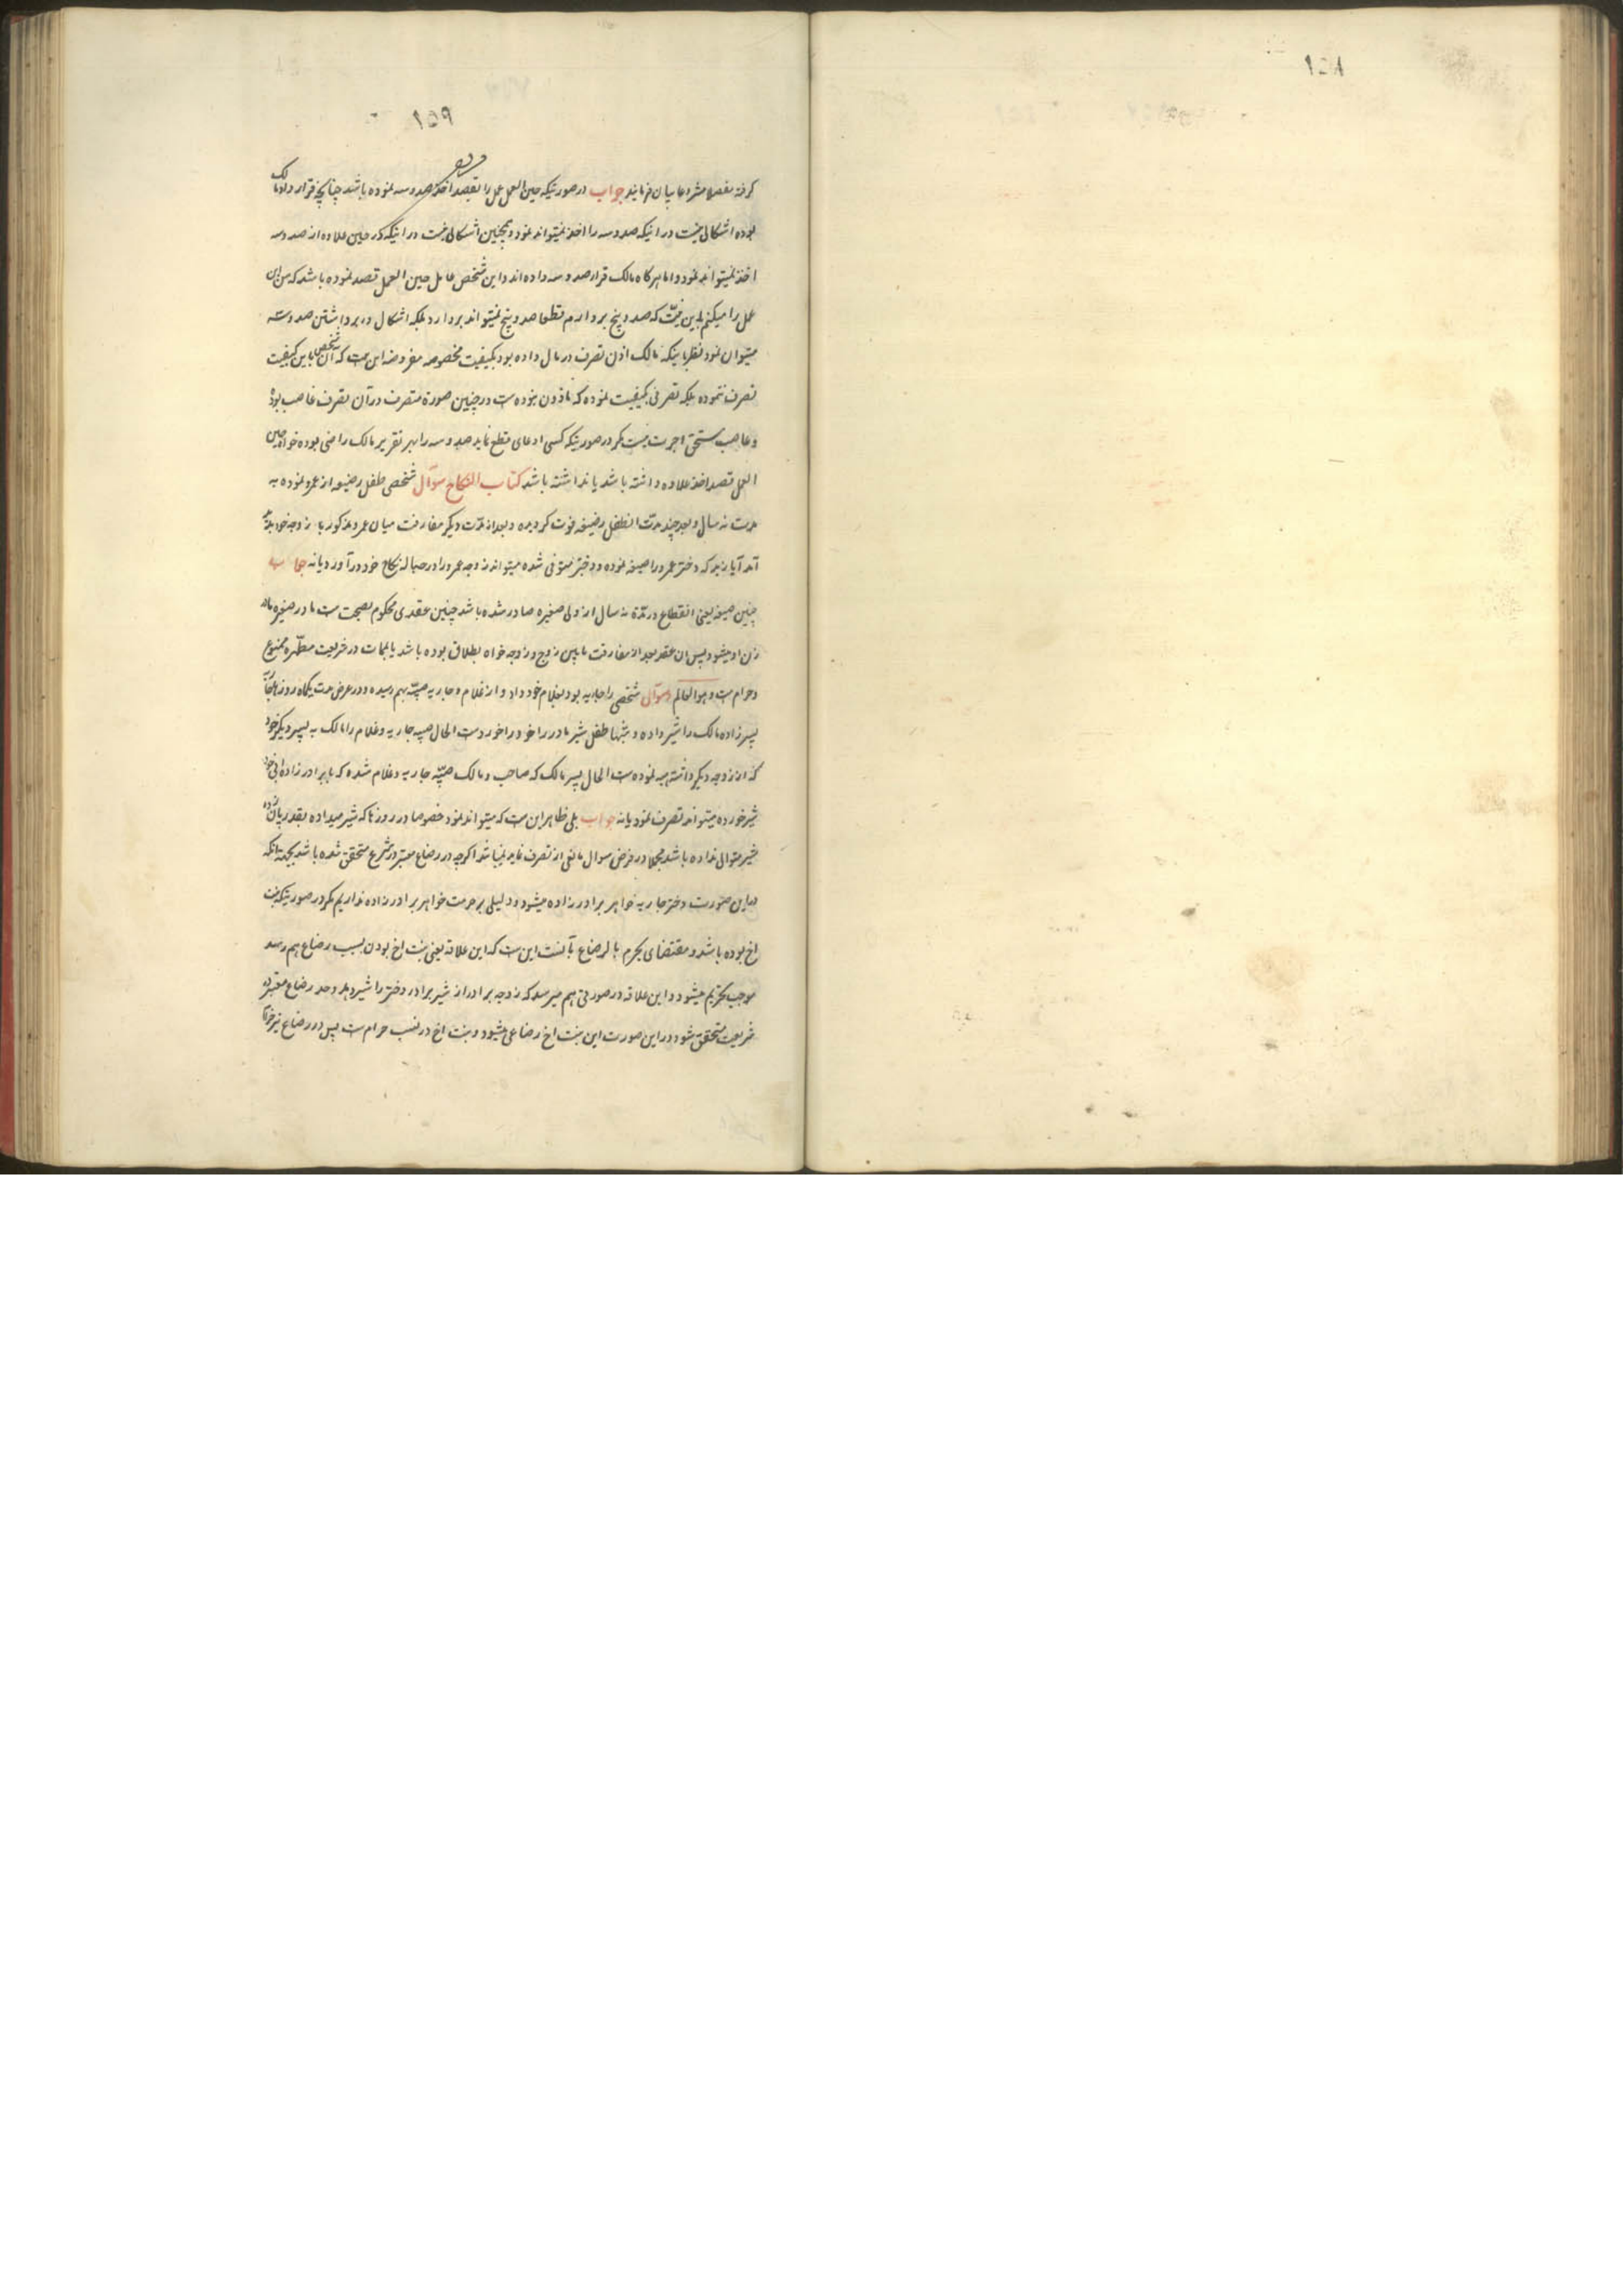 ۱۵۸
۱۵۹
کرفته مفصلا مشروعا بیان فرمایند جواب در صورتیکه حین العمل عمل را بقصد اخذ صد و سه نموده باشد چنانچه قرار داد مالک
بوده اشکالی نیست در اینکه صد و سه را اخذ میتواند نمود و همچنین اشکالی نیست در اینکه در حین علاوه از صد و سه
اخذ نمیتواند نمود و اما هرکاه مالک قرار صد و سه داده اند و این شخص عامل حین العمل قصد نموده باشد که من این
عمل را میکنم باین نیّت که صد و پنج بردارم قطعا صد و پنج نمیتواند بردارد بلکه اشکال در برداشتن صد و سه
میتوان نمود نظر باینکه مالک اذن تصرف در مال داده بود بکیفیت مخصوصه مفروضه این ست که آن شخص باین کیفیت
تصرف ننموده بلکه تصرفی بکیفیت نموده که ماذون نبوده ست در چنین صورة متصرف در آن تصرف غاصب بوده
و غاصب مستحق اجرت نیست مکر در صورتیکه کسی ادعای قطع نماید صد و سه را بهر تقریر مالک راضی بوده خواه حین
العمل قصد اخذ علاوه داشته باشد یا نداشته باشد کتاب النکاح سؤال شخصی طفل رضیعه از عمرو نموده به
مدت نه سال و بعد چند مدّت انطفل رضیعه فوت کردیده و بعد از مدّت دیکر مفارقت میان عمرو مذکور با زوجه خود بعمل
آمد آیا زید که دختر عمرو را صیغه نموده و دختر متوفی شده میتواند زوجه عمرو را در حباله نکاح خود در آورد یا نه جواب
چنین صیغه یعنی انقطاع در مدّة نه سال از ولی صغیره صادر شده باشد چنین عقدی محکوم بصحت ست مادر صغیره مادر
زن او میشود پس ان عقد بعد از مفارقت مابین زوج و زوجه خواه بطلاق بوده باشد یا بممات در شریعت مطهّره ممنوع
و حرام ست و هو العالم سؤال شخصی را جاریه بود بغلام خود داد و از غلام و جاریه صبیّه بهم رسیده و در عرض مدت یکماه روزها جاریه
پسر زاده مالک را شیر داده و شبها طفل شیر مادر را خود را خورده ست الحال صبیه جاریه و غلام را مالک به پسر دیکر خود
که از زوجه دیکر داشته هبه نموده ست الحال پسر مالک که صاحب و مالک صبیّه جاریه و غلام شده که با برادر زاده
شیر خورده میتواند تصرف نمود یا نه جواب بلی ظاهر این ست که میتواند نمود خصوصا در روزها که شیر میداده بقدر پانزده
شیر متوالی نداده باشد مجملا در فرض سوال مانعی از تصرف نماید نمیباشد اکرچه در رضاع معتبر در شرع متحقق شده باشد بجهة آنکه
در این صورت دختر جاریه خواهر برادر زاده میشود و دلیلی بر حرمت خواهر برادر زاده نداریم مکر در صورتیکه بنت
اخ بوده باشد و مقتضای یحرم بالرضاع این ست که این علاقه یعنی بنت اخ بودن بسبب رضاع بهم رسد
موجب تحریم میشود و این علاقه در صورتی هم میرسد که زوجه برادر از شیر برادر دختر را شیر دهد و حد رضاع معتبر در
شریعت متحقق شود در این صورت این بنت اخ رضاعی میشود و بنت اخ در نسب حرام ست پس در رضاع نیز